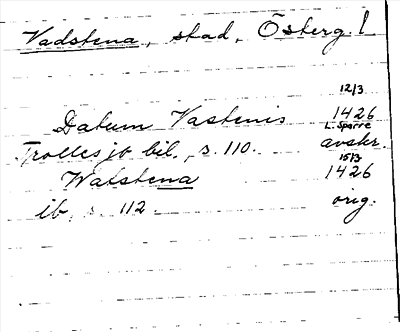 Vadstena, stad, Österg. l
12/3
Datum Vastenis 1426
L. Sparre
Trolles jb bil., s. 110. avskr.
15/3
Watstena 1426
ib. s. 112 orig.